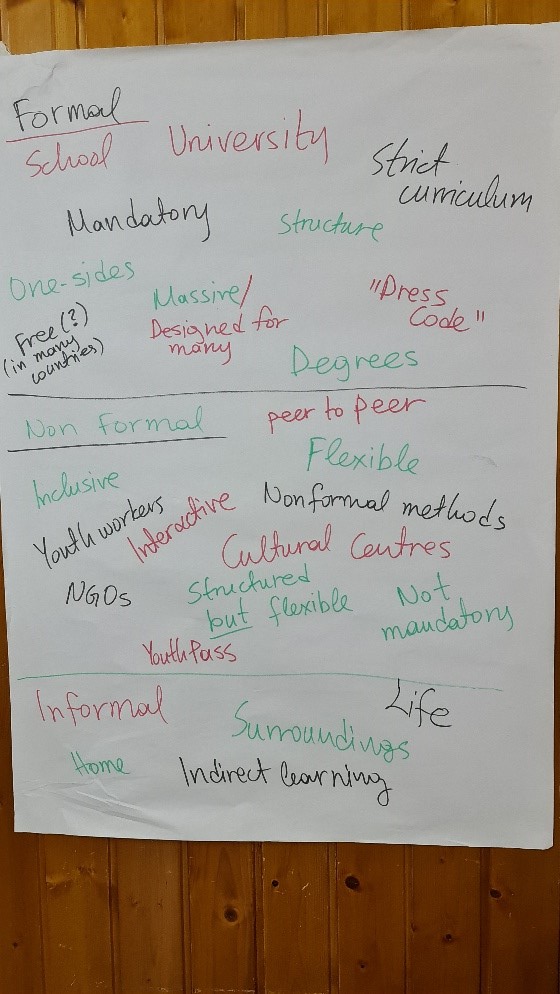 Formal
School University
Strict
curriculum
Mandatory
Structure
One-sides
Massive/
Designed for
many
"Dress
Code"
Free(?)
(in many
countries)
Degrees
Non Formal
peer to peer
Flexible
Inclusive
Youth workers
Interactive
Nonformal methods
Cultural Centres
NGOs
Structured
but flexible
Not
mandatory
YouthPass
Informal
Life
Surroundings
Home
Indirect learning